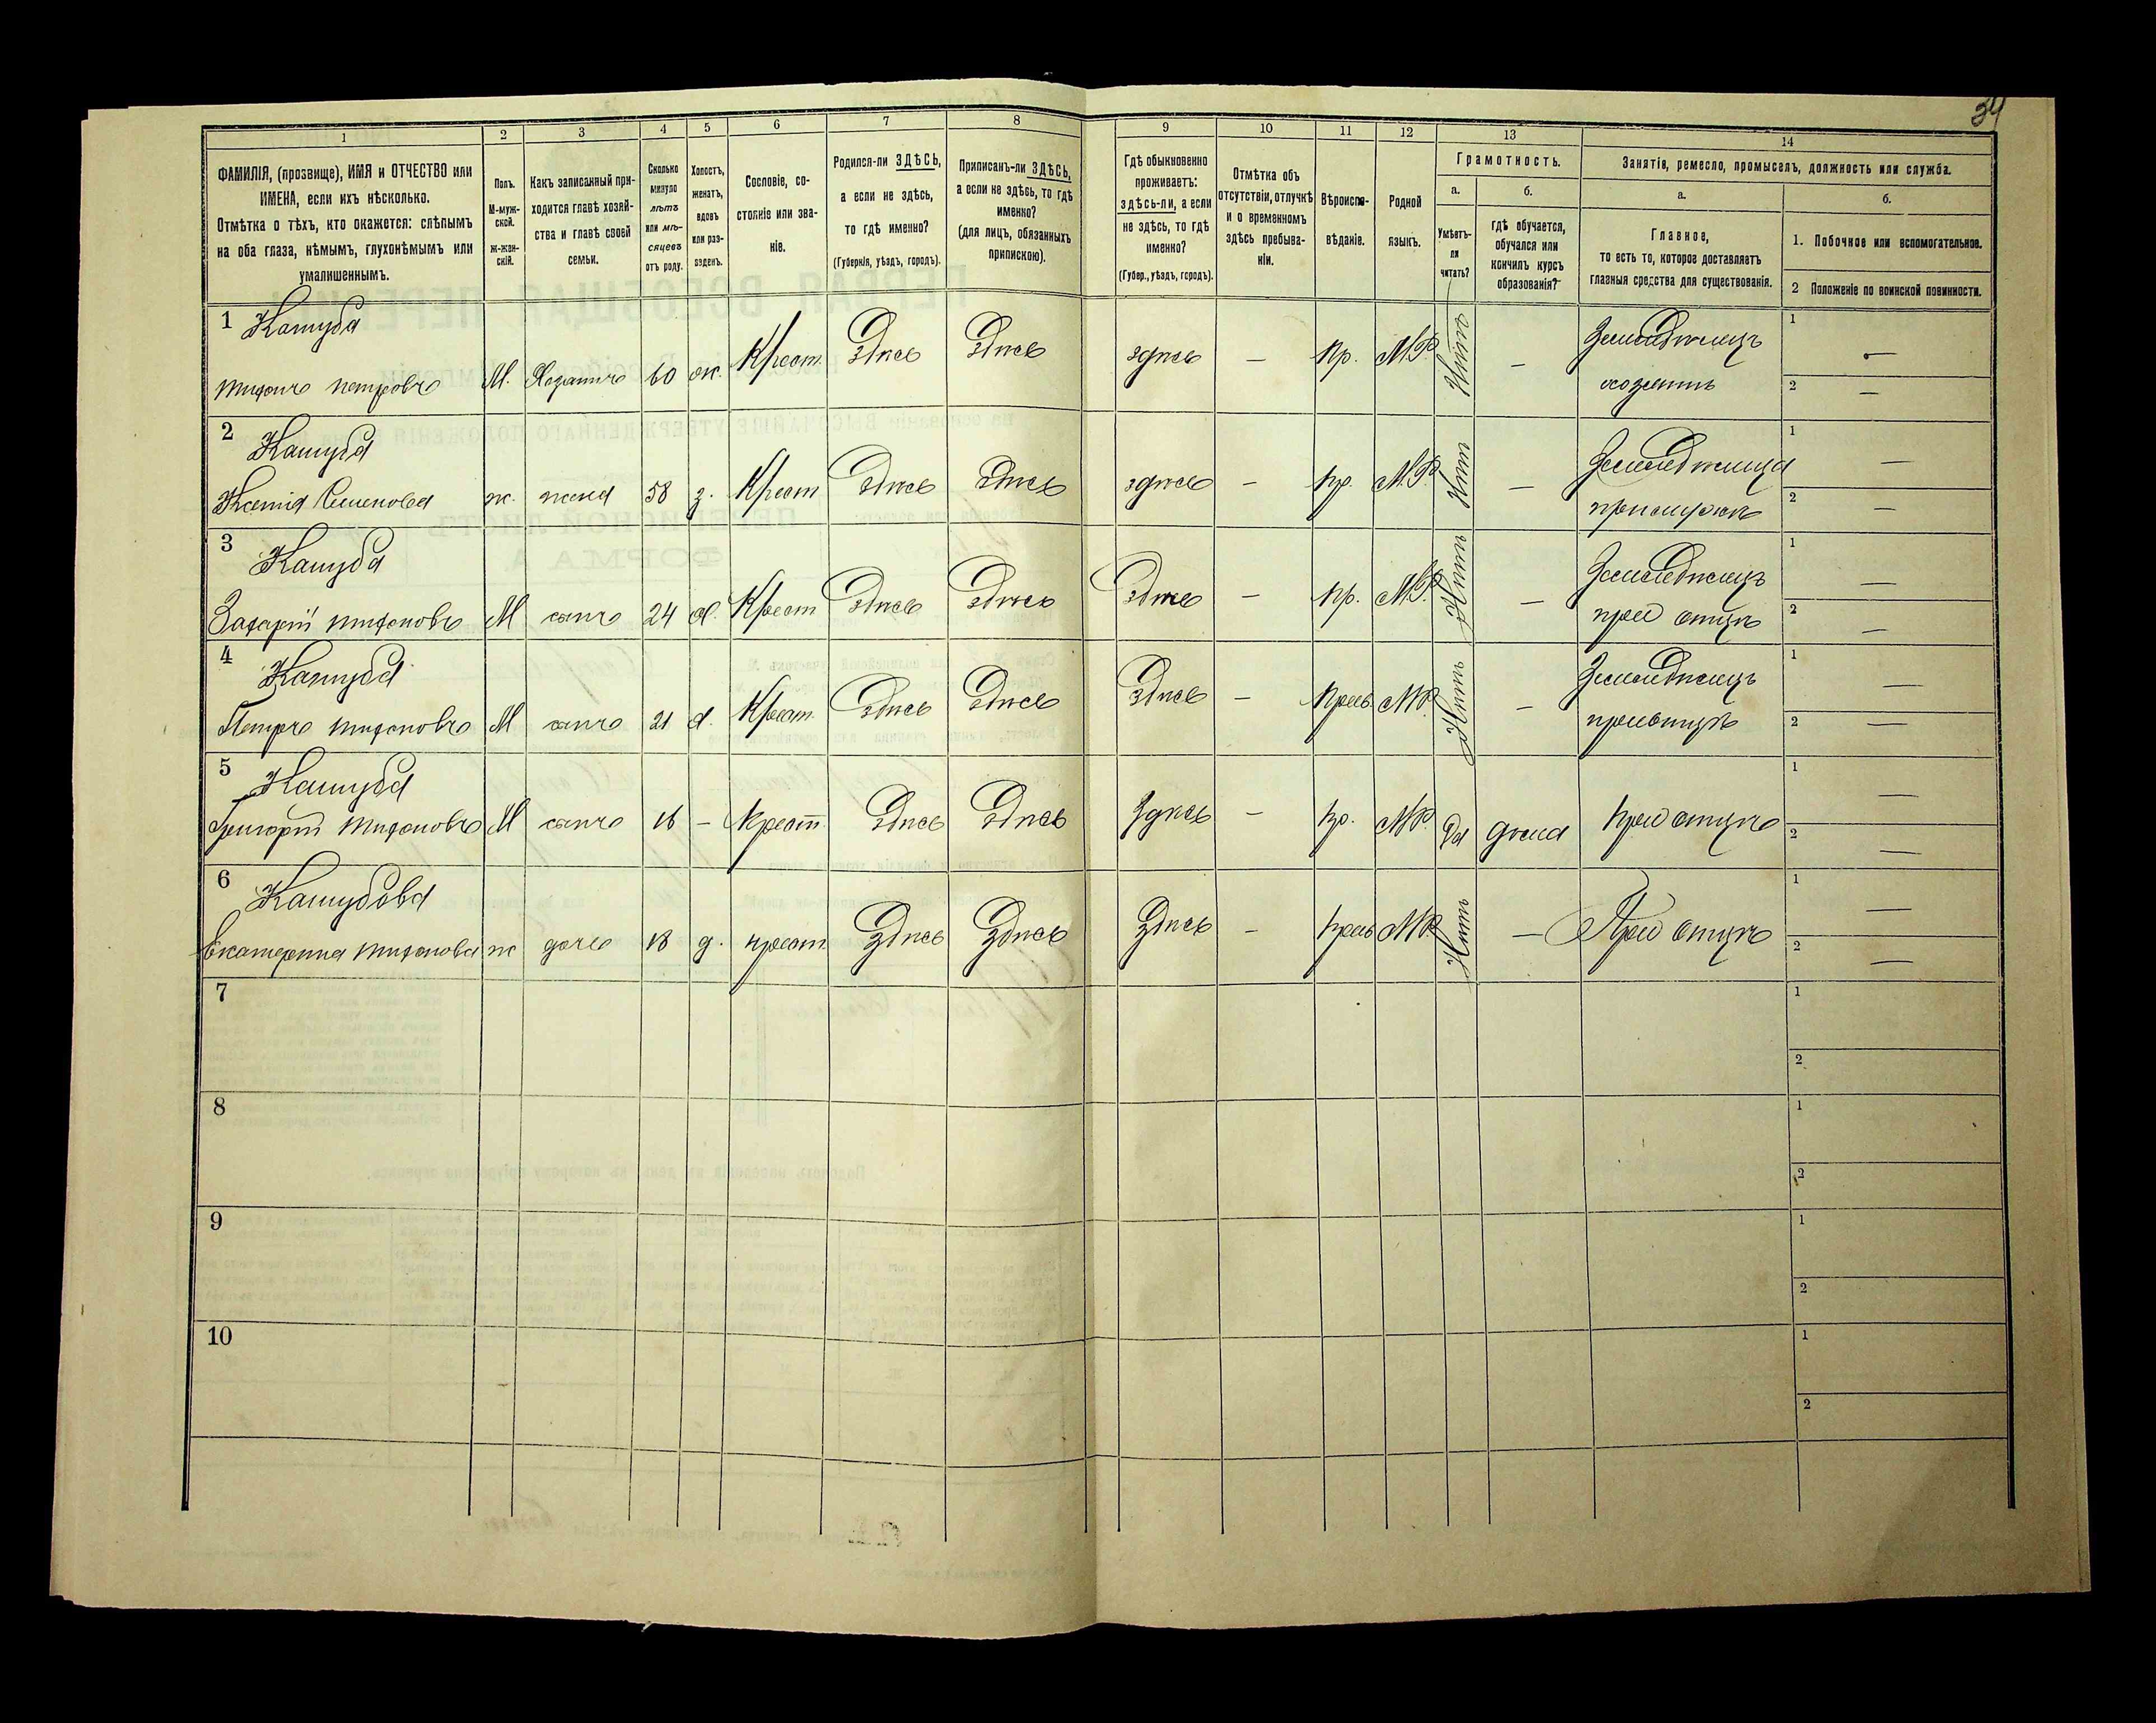 34
1 2 3 4 5 6 7 8 9 10 11 12 13 14
ФАМИЛІЯ, (прозвище), ИМЯ и ОТЧЕСТВО или
ИМЕНА, если ихъ нѣсколько.
Отмѣтка о тѣхъ, кто окажется: слѣпымъ
на оба глаза, нѣмымъ, глухонѣмымъ или
умалишеннымъ.
Полъ.
М-муж-
ской.
Ж-жен-
скій.
Какъ записанный при-
ходится главѣ хозяй-
ства и главѣ своей
семьи.
Сколько
минуло
лѣтъ
или мѣ-
сяцевъ
отъ роду.
Холостъ,
женатъ,
вдовъ
или раз-
веденъ.
Сословіе, со-
стояніе или зва-
ніе.
Родился-ли ЗДѢСЬ,
а если не здѣсь,
то гдѣ именно?
(Губернія, уѣздъ, городъ).
Приписанъ-ли ЗДѢСЬ,
а если не здѣсь, то гдѣ
именно?
(для лицъ, обязанныхъ
припискою).
Гдѣ обыкновенно
проживаетъ:
здѣсь-ли, а если
не здѣсь, то гдѣ
именно?
(Губер., уѣздъ, городъ).
Отмѣтка объ
отсутствіи, отлучкѣ
и о временномъ
здѣсь пребыва-
ніи.
Вѣроиспо-
вѣданіе.
Родной
языкъ.
Грамотность.
а. б.
Умѣетъ-
ли
читать?
гдѣ обучается,
обучался или
кончилъ курсъ
образованія?
Занятія, ремесло, промыселъ, должность или служба.
а. б.
Главное,
то есть то, которое доставляетъ
главныя средства для существованія.
1. Побочное или вспомогательное.
2 Положеніе по воинской повинности.
1 Кашуба
Тифонъ Петровъ М. Хозяинъ 60 ж. Крест. здѣсь здѣсь здѣсь — Пр. М.Р. Нѣтъ — Земледѣлецъ хозяинъ 1 — 2 —
2 Кашуба
Ксенія Семенова ж. жена 58 з. Крест здѣсь здѣсь здѣсь — Пр. М.Р. Нѣтъ — Земледѣлица при мужѣ 1 — 2 —
3 Кашуба
Захарій Тифоновъ М сынъ 24 х. Крест здѣсь здѣсь здѣсь — Пр. М.Р. Нѣтъ — Земледѣлецъ при отцѣ 1 — 2 —
4 Кашуба
Петръ Тифоновъ М сынъ 21 х. Крест. здѣсь здѣсь здѣсь — Прав. М.Р. Нѣтъ — Земледѣлецъ при отцѣ 1 — 2 —
5 Кашуба
Григорій Тифоновъ М сынъ 16 — Крест. здѣсь здѣсь здѣсь — Пр. М.Р. Да дома При отцѣ 1 — 2 —
6 Кашубова
Екатерина Тифонова ж дочь 18 д. крест здѣсь здѣсь здѣсь — Прав М.Р. Нѣтъ — При отцѣ 1 — 2 —
7 1 2
8 1 2
9 1 2
10 1 2